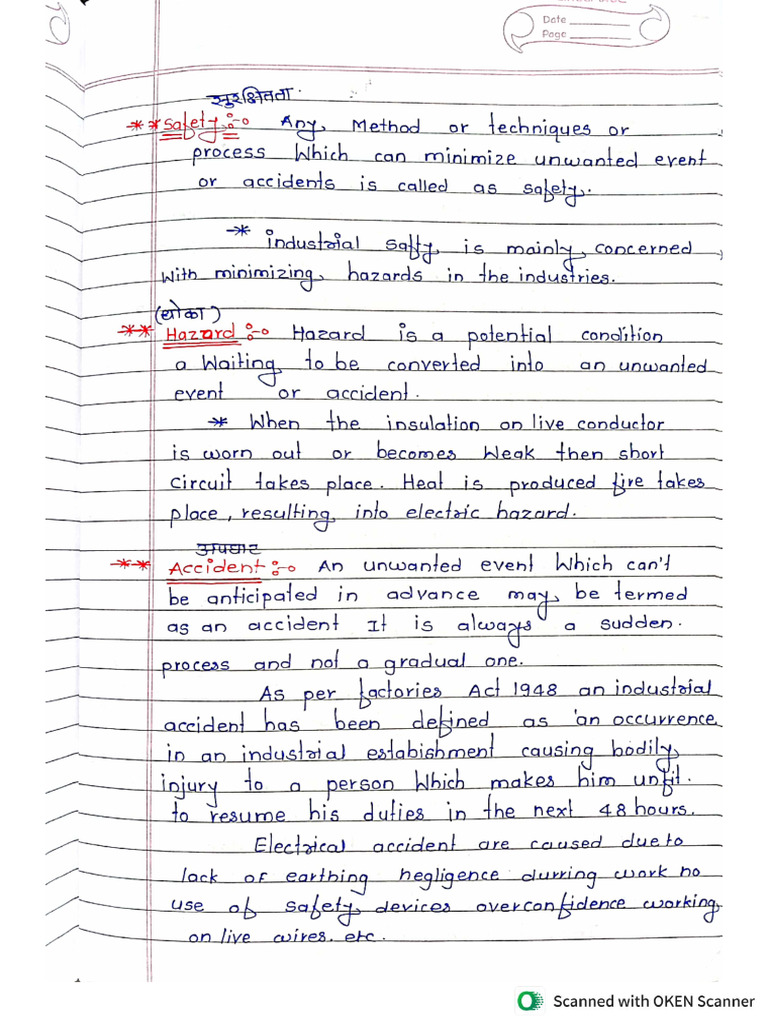 Date
Page
सुरक्षितता.
** Safety :-o Any Method or techniques or
process Which can minimize unwanted event
or accidents is called as safety.
* industrial safty is mainly concerned
With minimizing hazards in the industries.
(धोका)
** Hazard :-o Hazard is a potential condition
a Waiting to be converted into an unwanted
event or accident.
* When the insulation on live conductor
is worn out or becomes Weak then short
Circuit takes place. Heat is produced fire takes
place, resulting into electric hazard.
अपघात
** Accident :-o An unwanted event Which can't
be anticipated in advance may be termed
as an accident It is always a sudden.
process and not a gradual one.
As per factories Act 1948 an industrial
accident has been defined as 'an occurrence
in an industrial estabishment causing bodily
injury to a person Which makes him unfit.
to resume his duties in the next 48 hours.
Electrical accident are caused due to
lack of earthing negligence durring work no
use of safety devices overconfidence working
on live wires. etc.
Scanned with OKEN Scanner